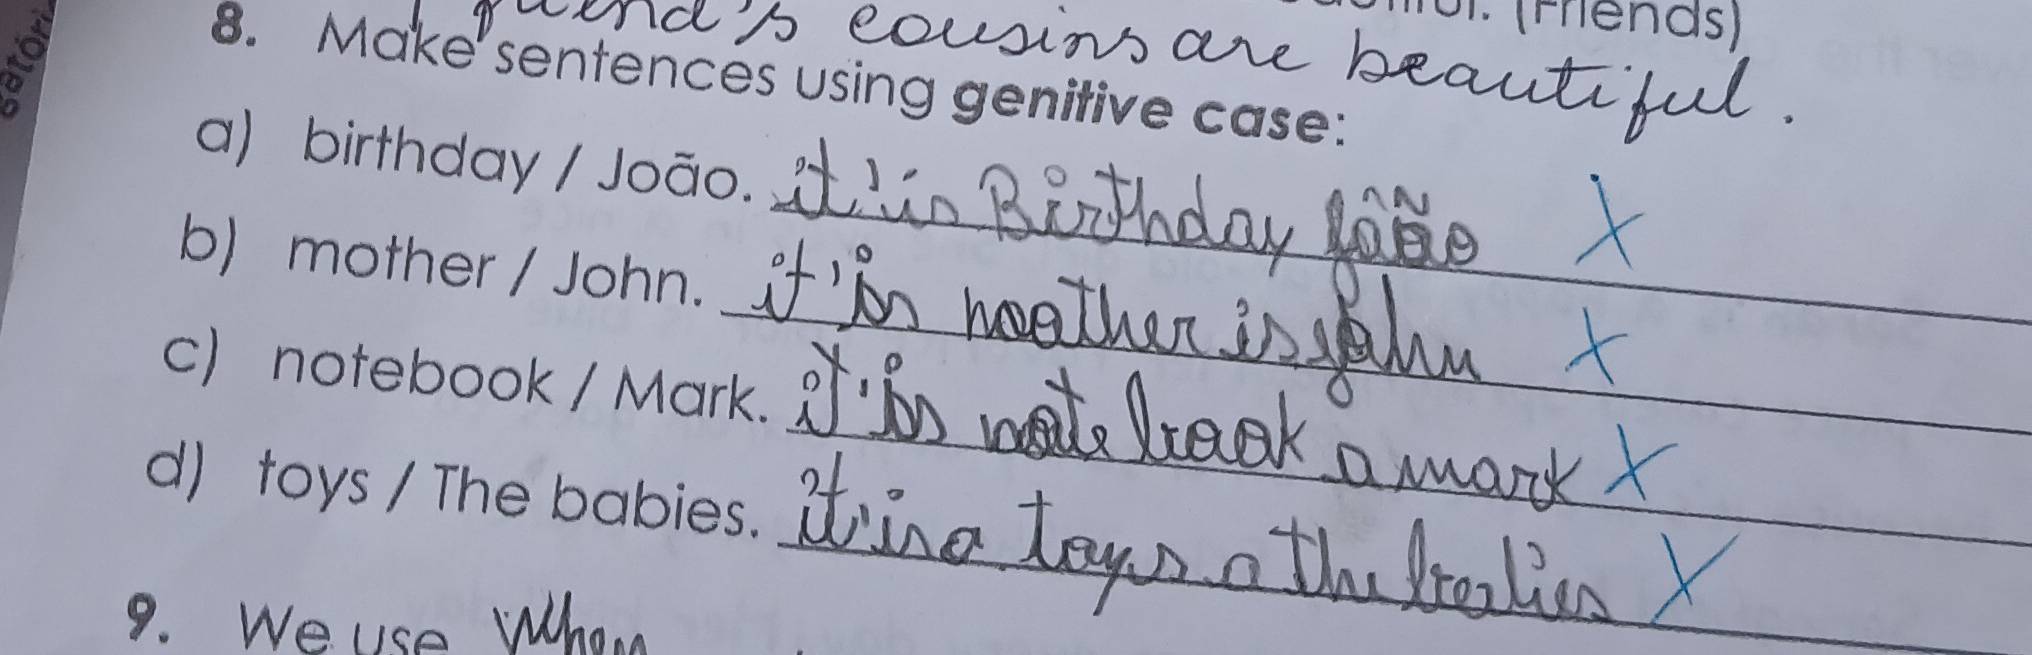 (Friends)
friend's cousins are beautiful.
8. Make sentences using genitive case:
a) birthday / João. it's Birthday João X
b) mother / John. it's moother is John X
c) notebook / Mark. it's note book a mark X
d) toys / The babies. it's a toys a the babies X
9. We use When